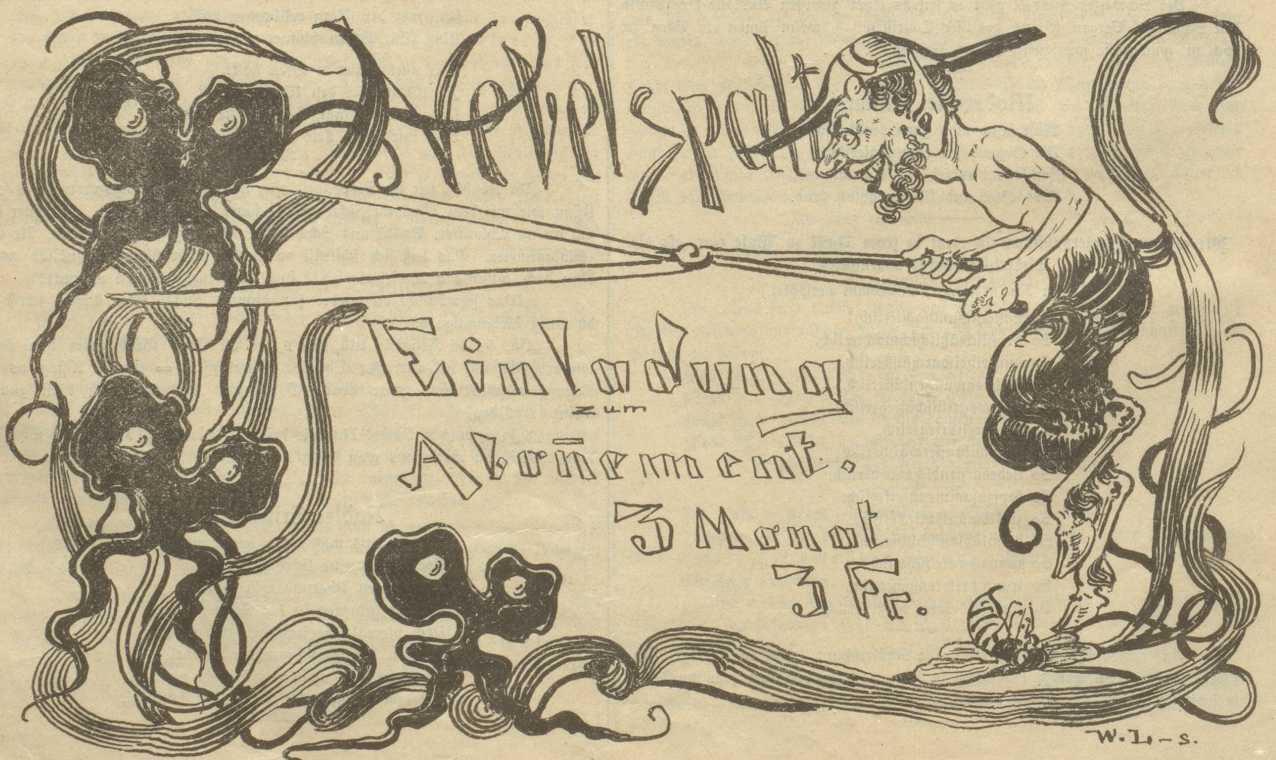 Nebelspalt
Einladung
zum
Abon̄ement.
3 Monat
3 Fr.
W.L-s.